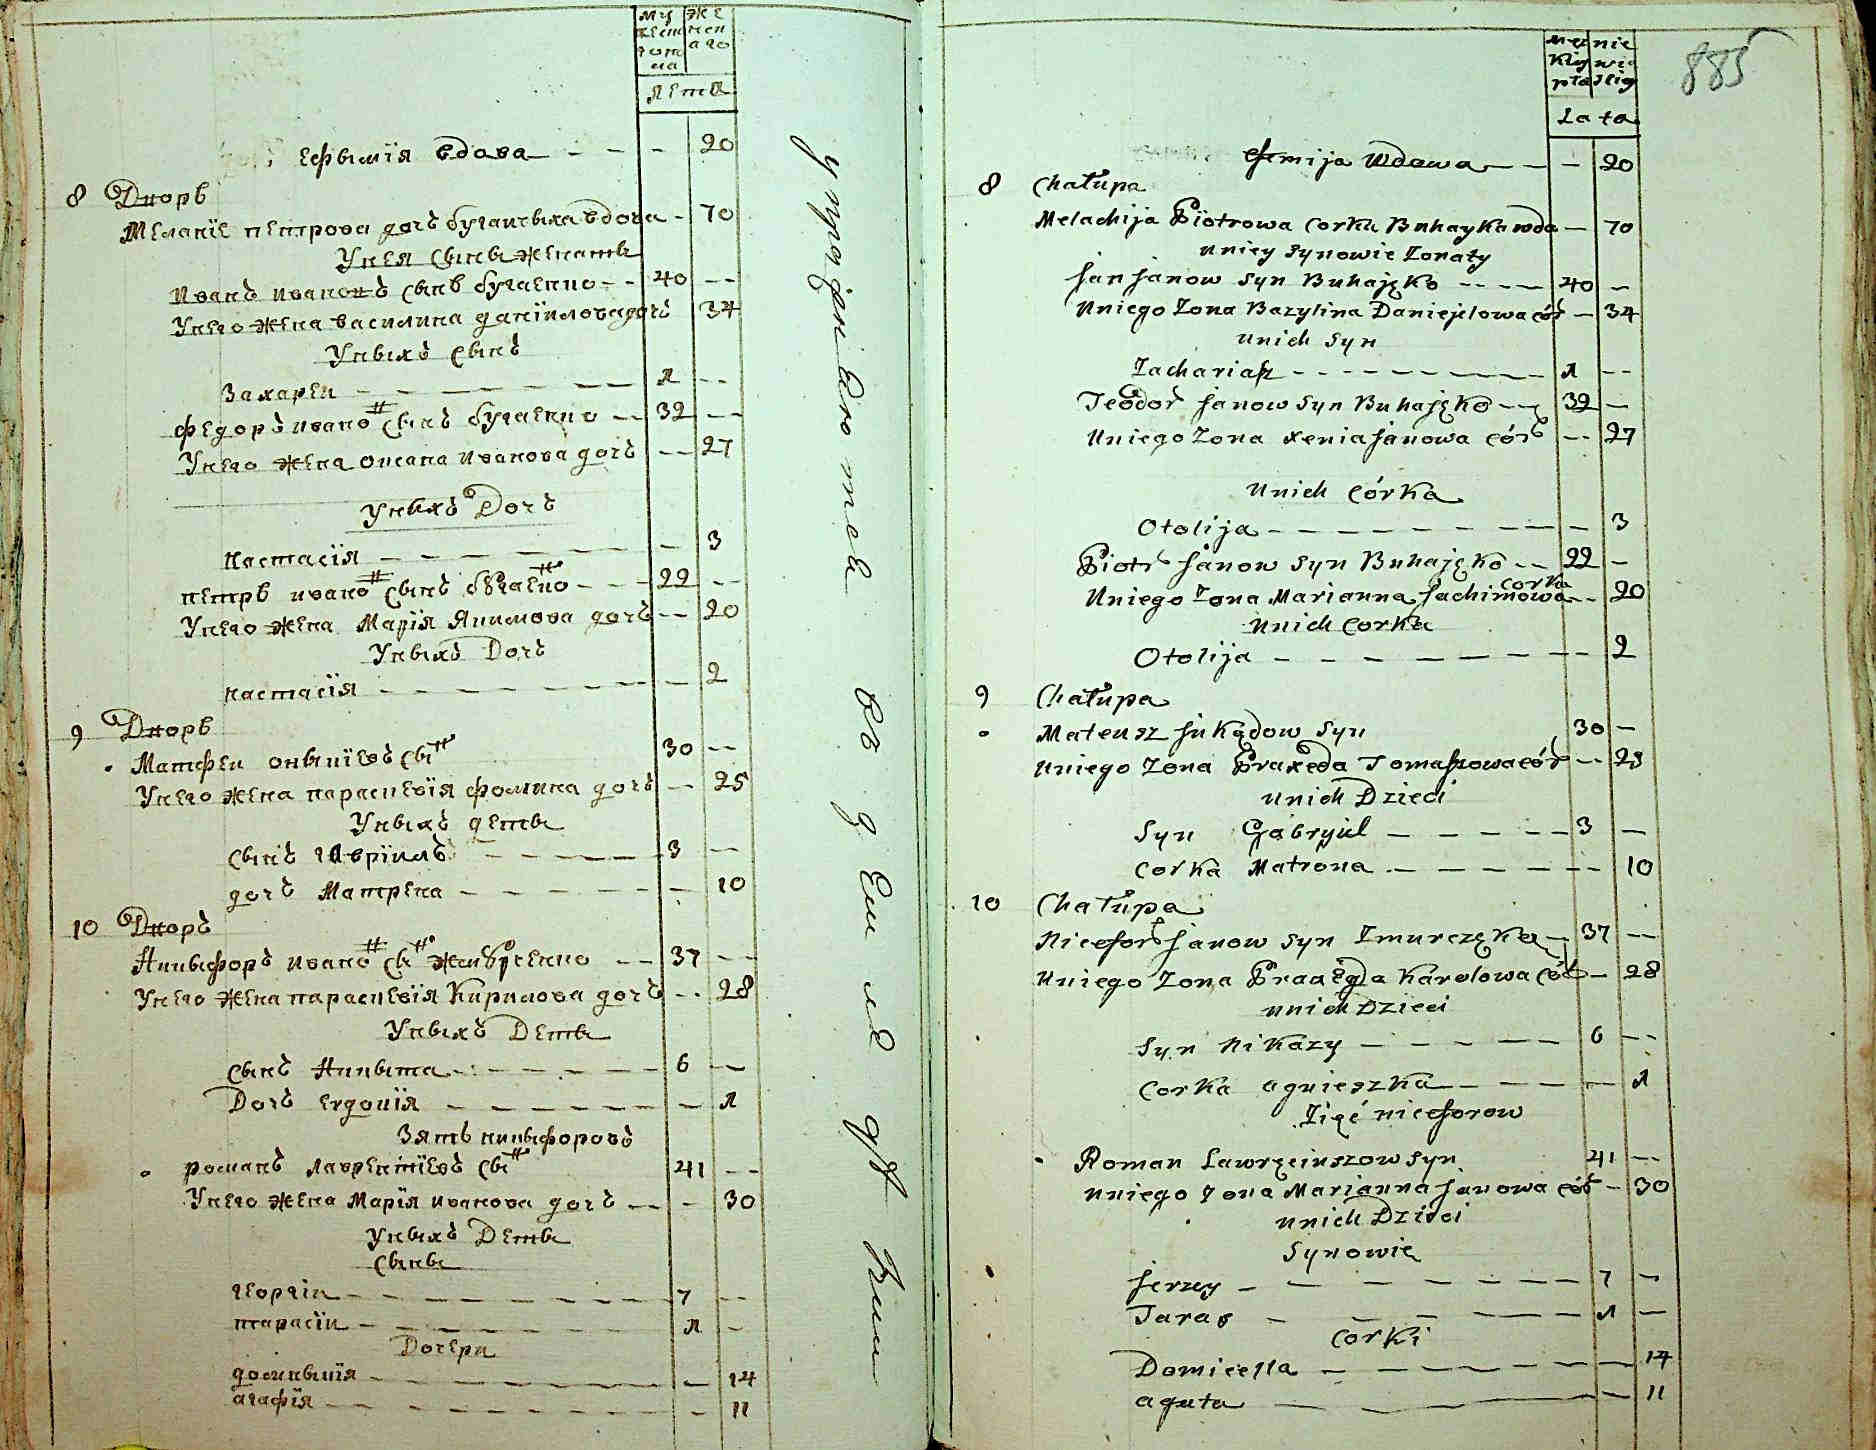 мужеска пола
женскаго
лета
Ефимїя вдова - - - 20
8 Дворъ
Меланїе петрова дочь бугаичиха вдова - 70
У нея сыны женаты
Иванъ Ивановъ сынъ бугаенко - - 40 - -
У него жена василина данїилова дочь 34
У нихъ сынъ
Захареи - - - - - - 1 - -
Федоръ ивано сынъ бугаенко - - 32 - -
У него жена оксана иванова дочь - - 27
У нихъ Дочь
Настасїя - - - - - - 3
петръ ивано сынъ бугаенко - - - 22 - -
У него жена Марїя Якимова дочь - - 20
У нихъ Дочь
настасїя - - - - - - 2
9 Дворъ
Матфеи сы 30 - -
У него жена параскевїя фомина дочь - - 25
У нихъ дети
сынъ гаврїилъ - - - - - 3 - -
дочь Матрена - - - - - - 10
10 Дворъ
Никифоръ ивано сы - - 37 - -
У него жена параскевїя Кирилова дочь - - 28
У нихъ Дети
сынъ Никита - - - - - 6 - -
Дочь евдокїя - - - - - - 1
Зять никифоровъ
романъ лаврентїевъ сы 41 - -
У него жена Марїя иванова дочь - - - 30
У нихъ Дети
Сыны
георгїи - - - - - - 7 - -
тарасїи - - - - - - 1 -
Дочери
домникїя - - - - - - 14
агафїя - - - - - - 11
885
Męzkiy płci
niewiesciey
Lata
Efemija Wdowa - - - 20
8 Chałupa
Melachija Piotrowa Corka Buhayka wda - 70
u niey synowie Zonaty
Jan Janow Syn Buhajęko - - - - 40 -
U niego Zona Bazylina Daniejelowa cór - 34
u nich Syn
Zachariasz - - - - - - - - 1 - -
Teodor Janow Syn Buhajęko - - 32 -
U niego Zona xenia Janowa cór - - 27
U nich Córka
Otolija - - - - - - - - 3
Piotr Janow Syn Buhajęko - - 22 -
U niego Zona Marianna Jachimowa corka - - 20
U nich Corka
Otolija - - - - - - - - 2
9 Chałupa
Mateusz Syn 30 -
U niego Zona Praxeda Tomaszowa cór - - 25
U nich Dzieci
Syn Gabryiel - - - - - 3 -
Corka Matrona - - - - - - 10
10 Chałupa
Nicefor Janow Syn Zmurczęko - 37 - -
U niego Zona Karolowa cór - 28
U nich Dzieci
Syn Nikazy - - - - - 6 - -
Corka agnieszka - - - - - 1
Zięć niceforow
Roman Lawręciuszow Syn 41 - -
U niego Zona Marianna Janowa cór - 30
U nich Dzieci
Synowie
Jerzey - - - - - - - 7 -
Taras - - - - - 1 -
Corki
Domicella - - - - - - - 14
agata - - - - 11